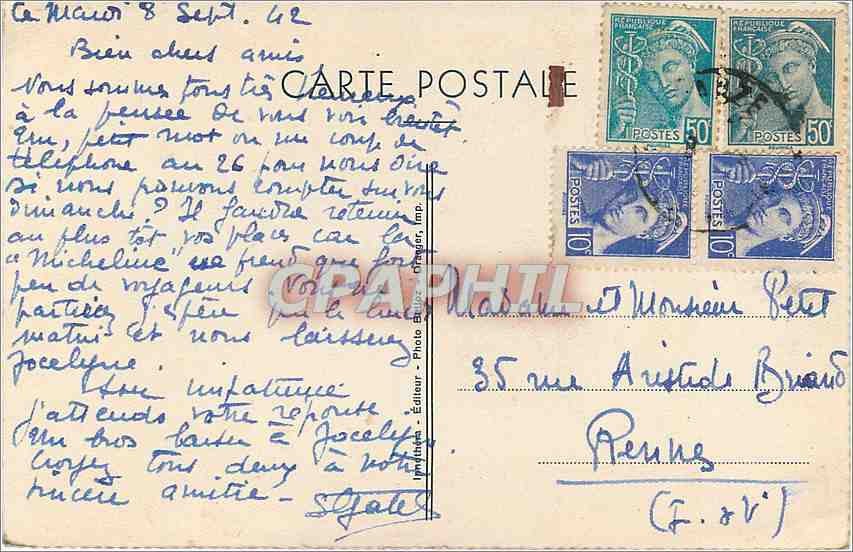 Ce Mardi 8 Sept. 42
Bien chers amis
Vous sommes tous très heureux
à la pensée de vous voir bientôt
Un petit mot ou un coup de
téléphone au 26 pour nous dire
si nous pouvons compter sur vous
Dimanche? Il faudra retenir
au plus tôt vos places car la
"Micheline" ne prend que fort
peu de voyageurs Vous ne
partirez j'espère que le lundi
matin et nous laisserez
Jocelyne.
Son impatience
J'attends votre réponse.
Un gros baiser à Jocelyne
Croyez tous deux à notre
sincère amitié -
CARTE POSTALE
Innothéra - Éditeur - Photo Bulloz - Granger, Imp.
RÉPUBLIQUE FRANÇAISE
POSTES 50c
RÉPUBLIQUE FRANÇAISE
POSTES 50c
RÉPUBLIQUE FRANÇAISE
POSTES 10c
RÉPUBLIQUE FRANÇAISE
POSTES 10c
CPAPHIL
Madame et Monsieur Petit
35 rue Aristide Briand
Rennes
(I. & V.)